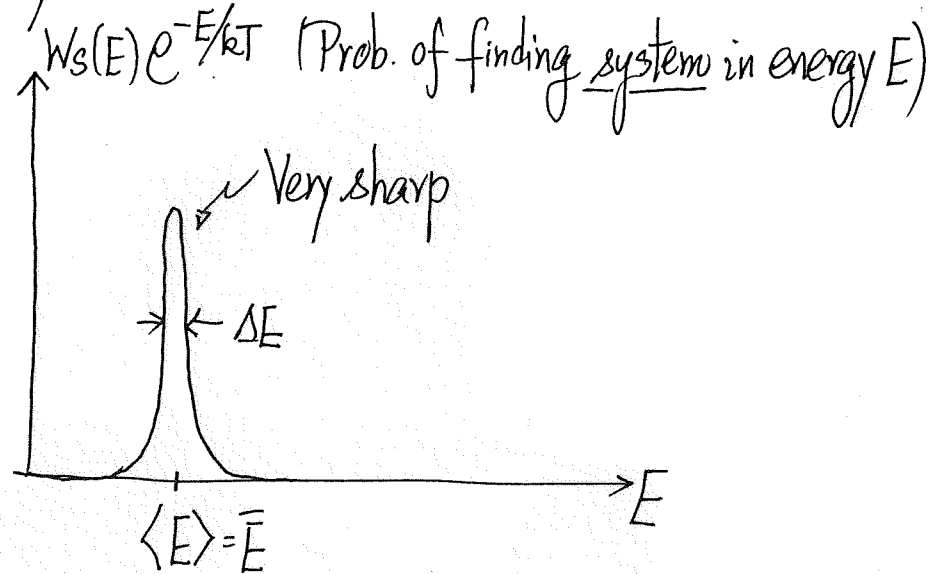 Ws(E) e^-E/kT (Prob. of finding system in energy E)
Very sharp
ΔE
E
⟨E⟩ = Ē